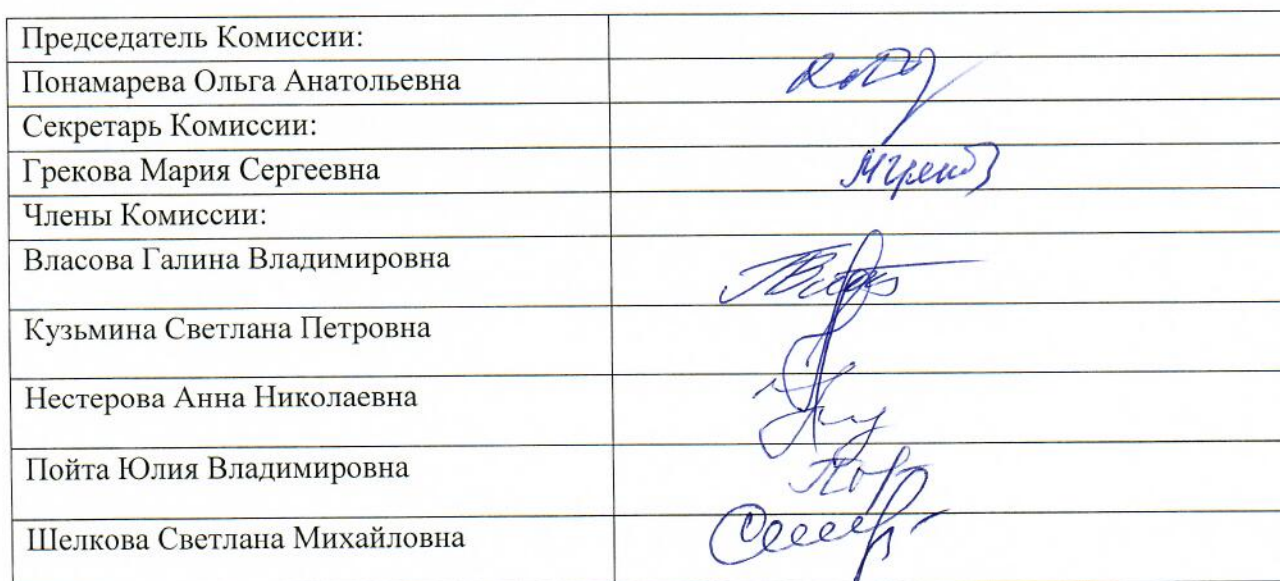 Председатель Комиссии:
Понамарева Ольга Анатольевна
Секретарь Комиссии:
Грекова Мария Сергеевна
Члены Комиссии:
Власова Галина Владимировна
Кузьмина Светлана Петровна
Нестерова Анна Николаевна
Пойта Юлия Владимировна
Шелкова Светлана Михайловна